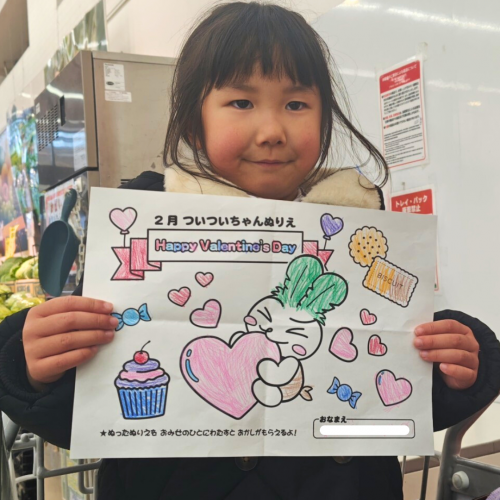 2月 ついついちゃんぬりえ
Happy Valentine's Day
BISCUIT
おなまえ
★ぬったぬりえを おみせのひとにわたすと おかしがもらえるよ!
トレイ・パック